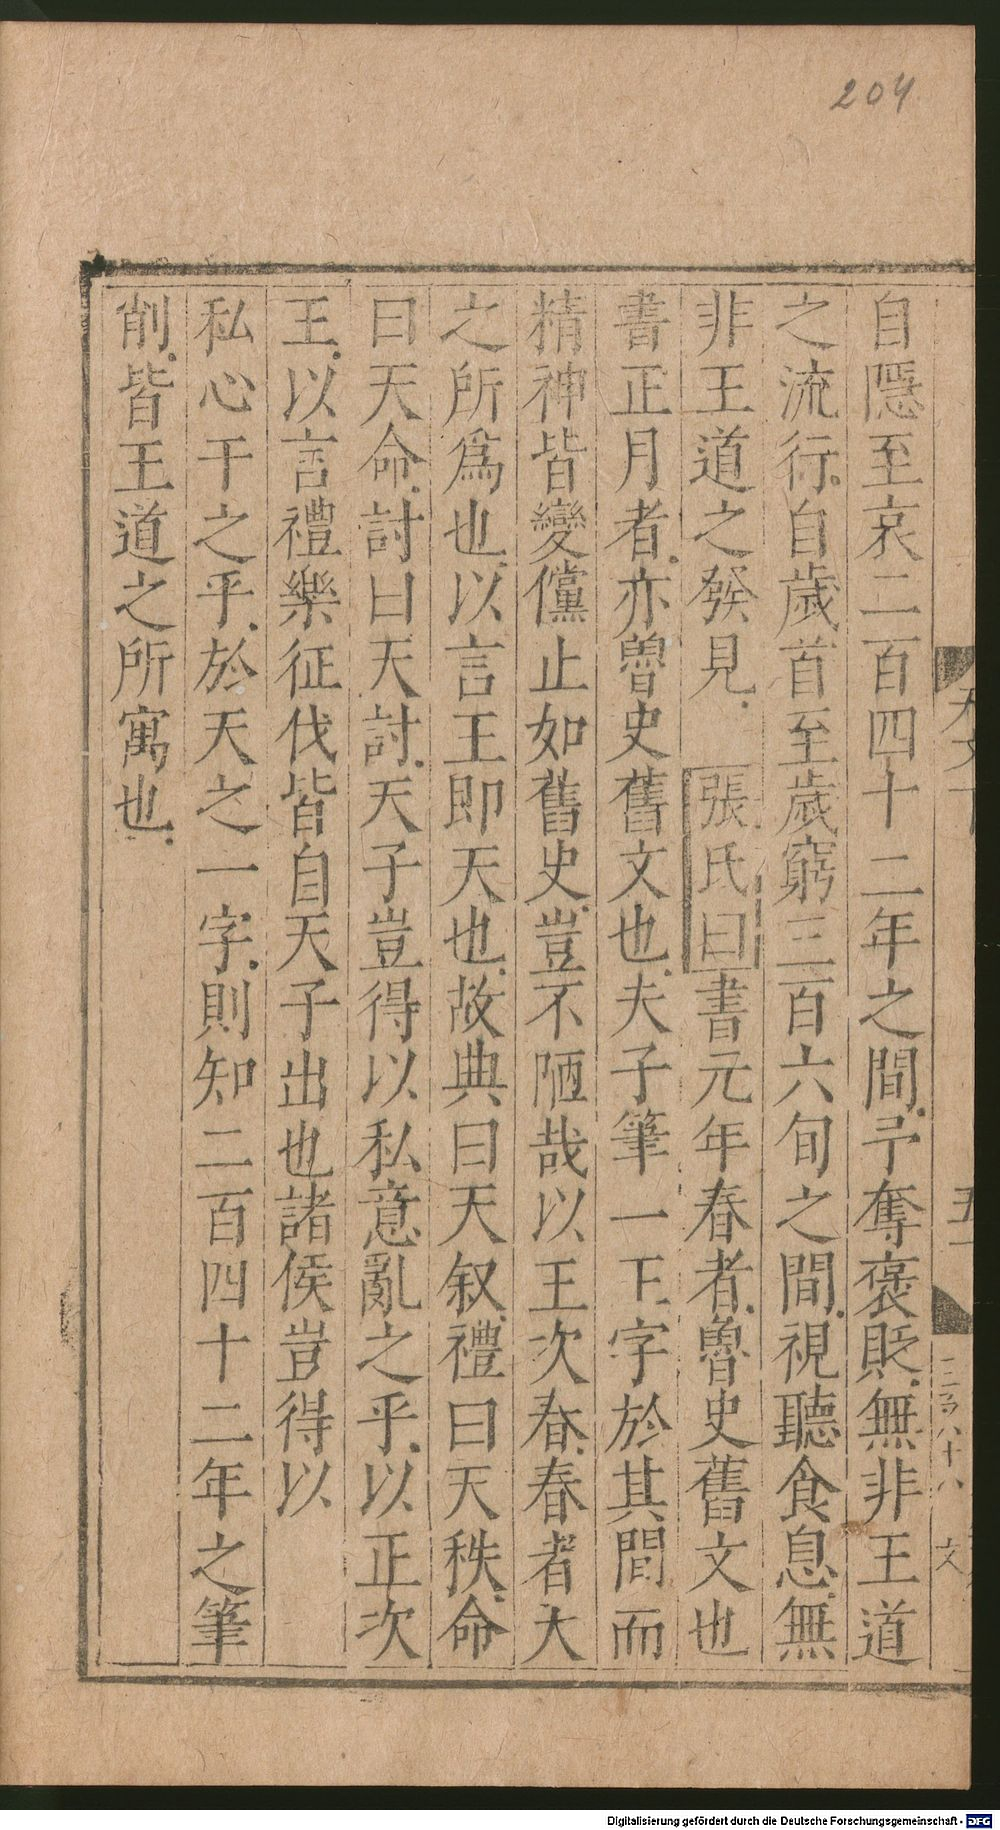 204
自隱至哀二百四十二年之間予奪褒貶無非王道
之流行自歲首至歲窮三百六旬之間視聽食息無
非王道之發見 張氏曰書元年春者魯史舊文也
書正月者亦魯史舊文也夫子筆一王字於其間而
精神皆變儻止如舊史豈不陋哉以王次春春者天
之所爲也以言王即天也故典曰天叙禮曰天秩命
曰天命討曰天討天子豈得以私意亂之乎以正次
王以言禮樂征伐皆自天子出也諸侯豈得以
私心干之乎於天之一字則知二百四十二年之筆
削皆王道之所寓也
三百八十八
Digitalisierung gefördert durch die Deutsche Forschungsgemeinschaft - DFG